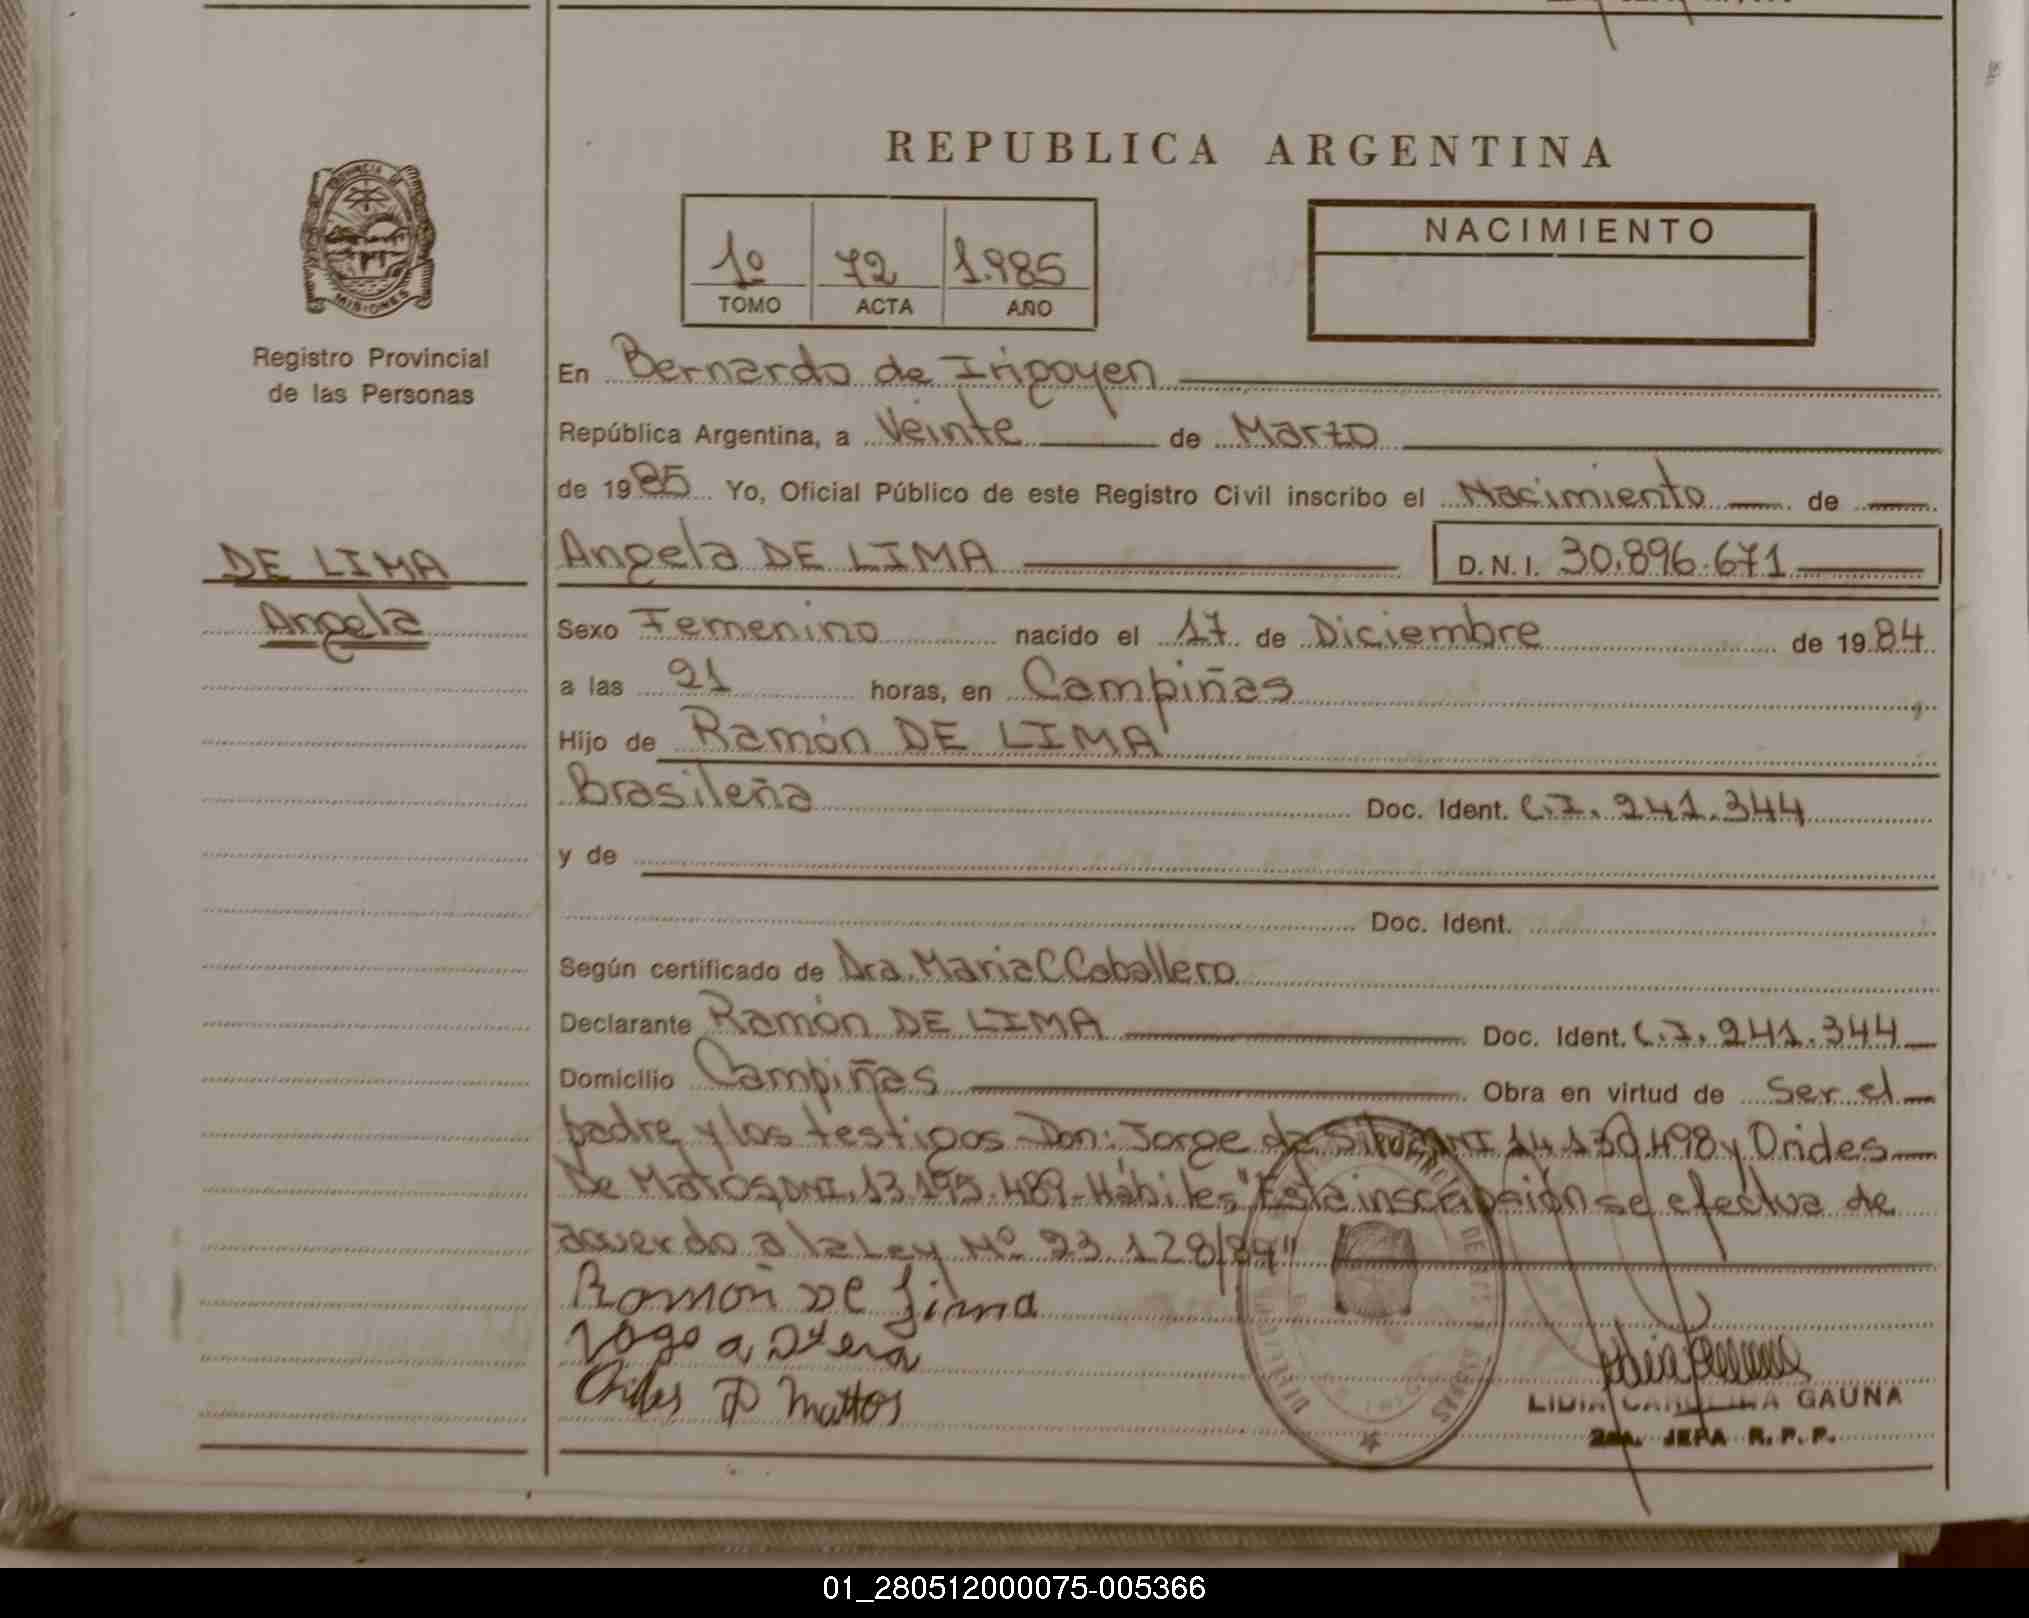 REPUBLICA ARGENTINA
PROVINCIA DE
MISIONES
Registro Provincial
de las Personas
1º 72 1.985
TOMO ACTA AÑO
NACIMIENTO
En Bernardo de Irigoyen
República Argentina, a Veinte de Marzo
de 1985 Yo, Oficial Público de este Registro Civil inscribo el Nacimiento de
DE LIMA
Angela
Angela DE LIMA D.N.I. 30.896.671
Sexo Femenino nacido el 17 de Diciembre de 1984
a las 21 horas, en Campiñas
Hijo de Ramón DE LIMA
Brasileña Doc. Ident. C.I. 241.344
y de
Doc. Ident.
Según certificado de Dra. Maria C Caballero
Declarante Ramón DE LIMA Doc. Ident. C.I. 241.344
Domicilio Campiñas Obra en virtud de Ser el
padre y los testigos Don: Jorge da Silva DNI 14.130.498 y Orides
De Matos DNI. 13.195.489 Hábiles, "Esta inscripsión se efectua de
acuerdo a la Ley Nº 23.128/84"
Ramon De Lima
Orides D Mattos
LIDIA CAROLINA GAUNA
2da. JEFA R. P. P.
01_280512000075-005366